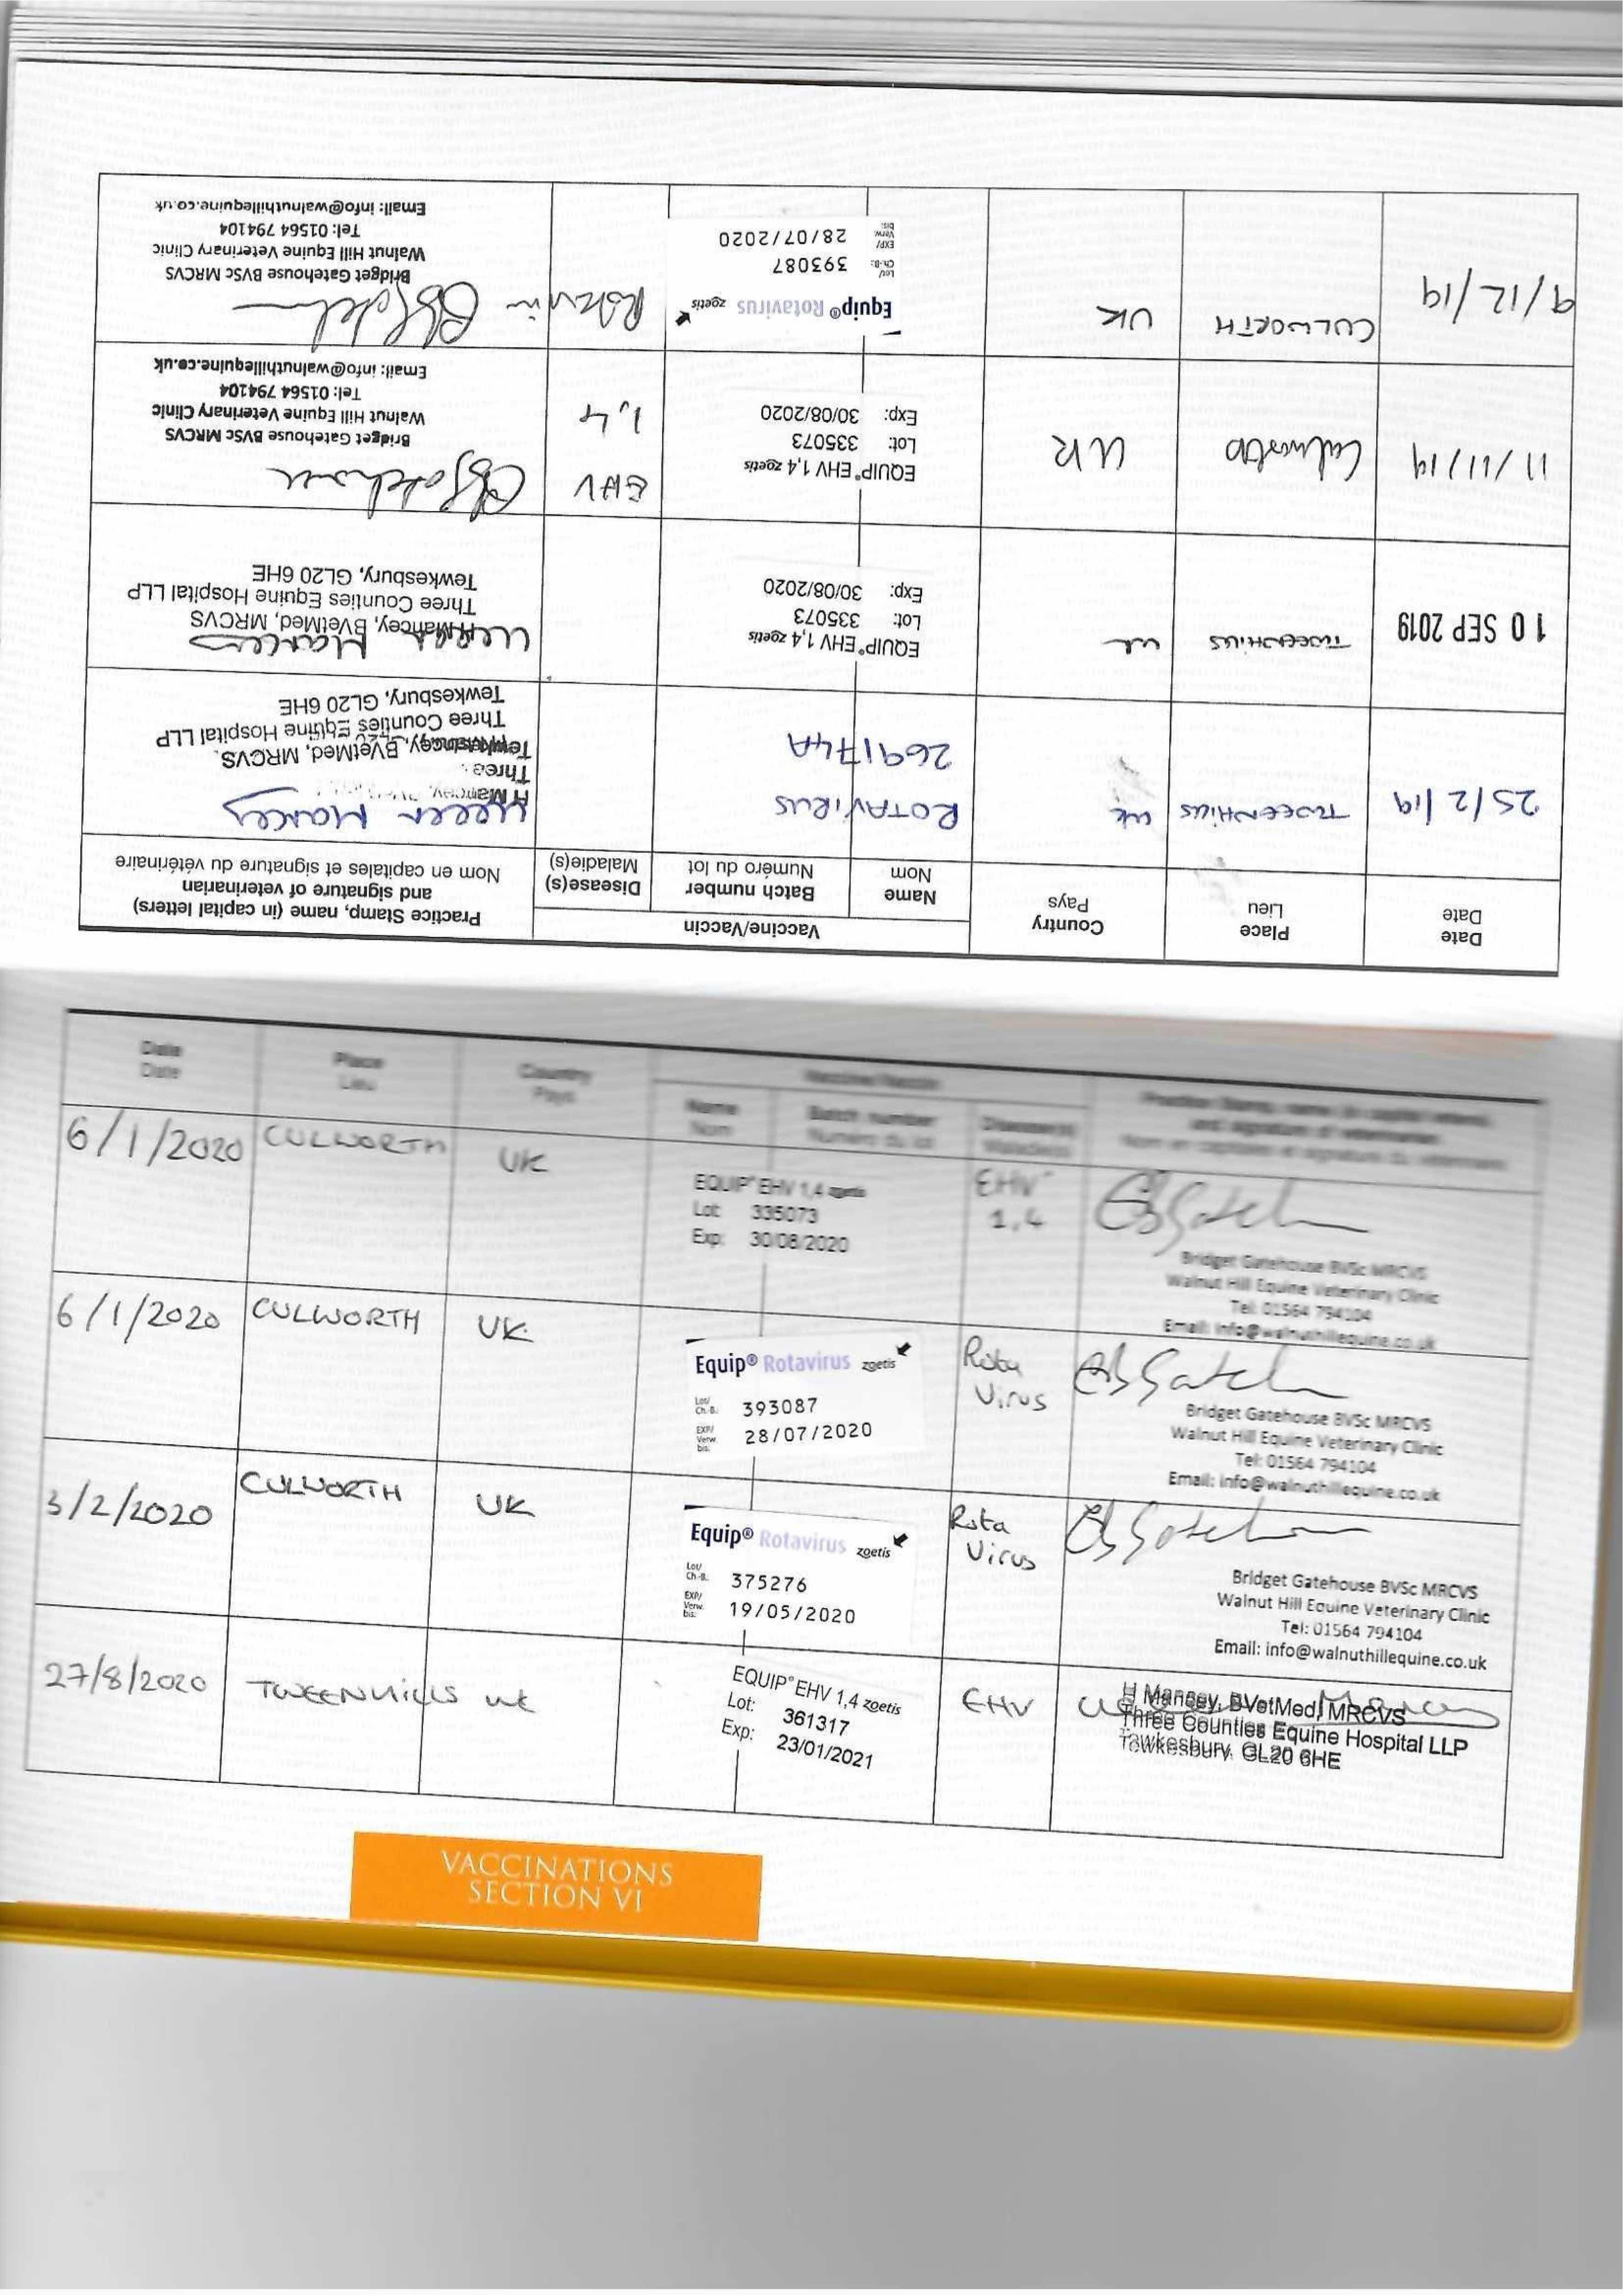 Date
Date
Place
Lieu
Country
Pays
Vaccine/Vaccin
Name
Nom
Batch number
Numéro du lot
Disease(s)
Maladie(s)
Practice Stamp, name (in capital letters)
and signature of veterinarian
Nom en capitales et signature du vétérinaire
25/2/19
TWEENHILLS
UK
ROTAVIRUS
269174A
H Mancey,
Three
H Mancey, BVetMed, MRCVS
Three Counties Equine Hospital LLP
Tewkesbury, GL20 6HE
10 SEP 2019
TWEENHILLS
UK
EQUIP® EHV 1,4 zoetis
Lot: 335073
Exp: 30/08/2020
H Mancey, BVetMed, MRCVS
Three Counties Equine Hospital LLP
Tewkesbury, GL20 6HE
11/11/19
Culworth
UK
EQUIP® EHV 1,4 zoetis
Lot: 335073
Exp: 30/08/2020
EHV
1,4
Bridget Gatehouse BVSc MRCVS
Walnut Hill Equine Veterinary Clinic
Tel: 01564 794104
Email: info@walnuthillequine.co.uk
9/12/19
CULWORTH
UK
Equip® Rotavirus zoetis
Lot/
Ch-B.: 393087
EXP/
Verw.
bis: 28/07/2020
Bridget Gatehouse BVSc MRCVS
Walnut Hill Equine Veterinary Clinic
Tel: 01564 794104
Email: info@walnuthillequine.co.uk
Date
Date
Place
Lieu
Country
Pays
Vaccine/Vaccin
Name
Nom
Batch number
Numéro du lot
Disease(s)
Maladie(s)
Practice Stamp, name (in capital letters)
and signature of veterinarian
Nom en capitales et signature du vétérinaire
6/1/2020
CULWORTH
UK
EQUIP® EHV 1,4 zoetis
Lot: 335073
Exp: 30/08/2020
EHV
1,4
Bridget Gatehouse BVSc MRCVS
Walnut Hill Equine Veterinary Clinic
Tel: 01564 794104
Email: info@walnuthillequine.co.uk
6/1/2020
CULWORTH
UK
Equip® Rotavirus zoetis
Lot/
Ch.-B.: 393087
EXP/
Verw.
bis: 28/07/2020
Rota
Virus
Bridget Gatehouse BVSc MRCVS
Walnut Hill Equine Veterinary Clinic
Tel: 01564 794104
Email: info@walnuthillequine.co.uk
3/2/2020
CULWORTH
UK
Equip® Rotavirus zoetis
Lot/
Ch.-B.: 375276
EXP/
Verw.
bis: 19/05/2020
Rota
Virus
Bridget Gatehouse BVSc MRCVS
Walnut Hill Equine Veterinary Clinic
Tel: 01564 794104
Email: info@walnuthillequine.co.uk
27/8/2020
TWEENHILLS
UK
EQUIP® EHV 1,4 zoetis
Lot: 361317
Exp: 23/01/2021
EHV
H Mancey, BVetMed, MRCVS
Three Counties Equine Hospital LLP
Tewkesbury, GL20 6HE
VACCINATIONS
SECTION VI